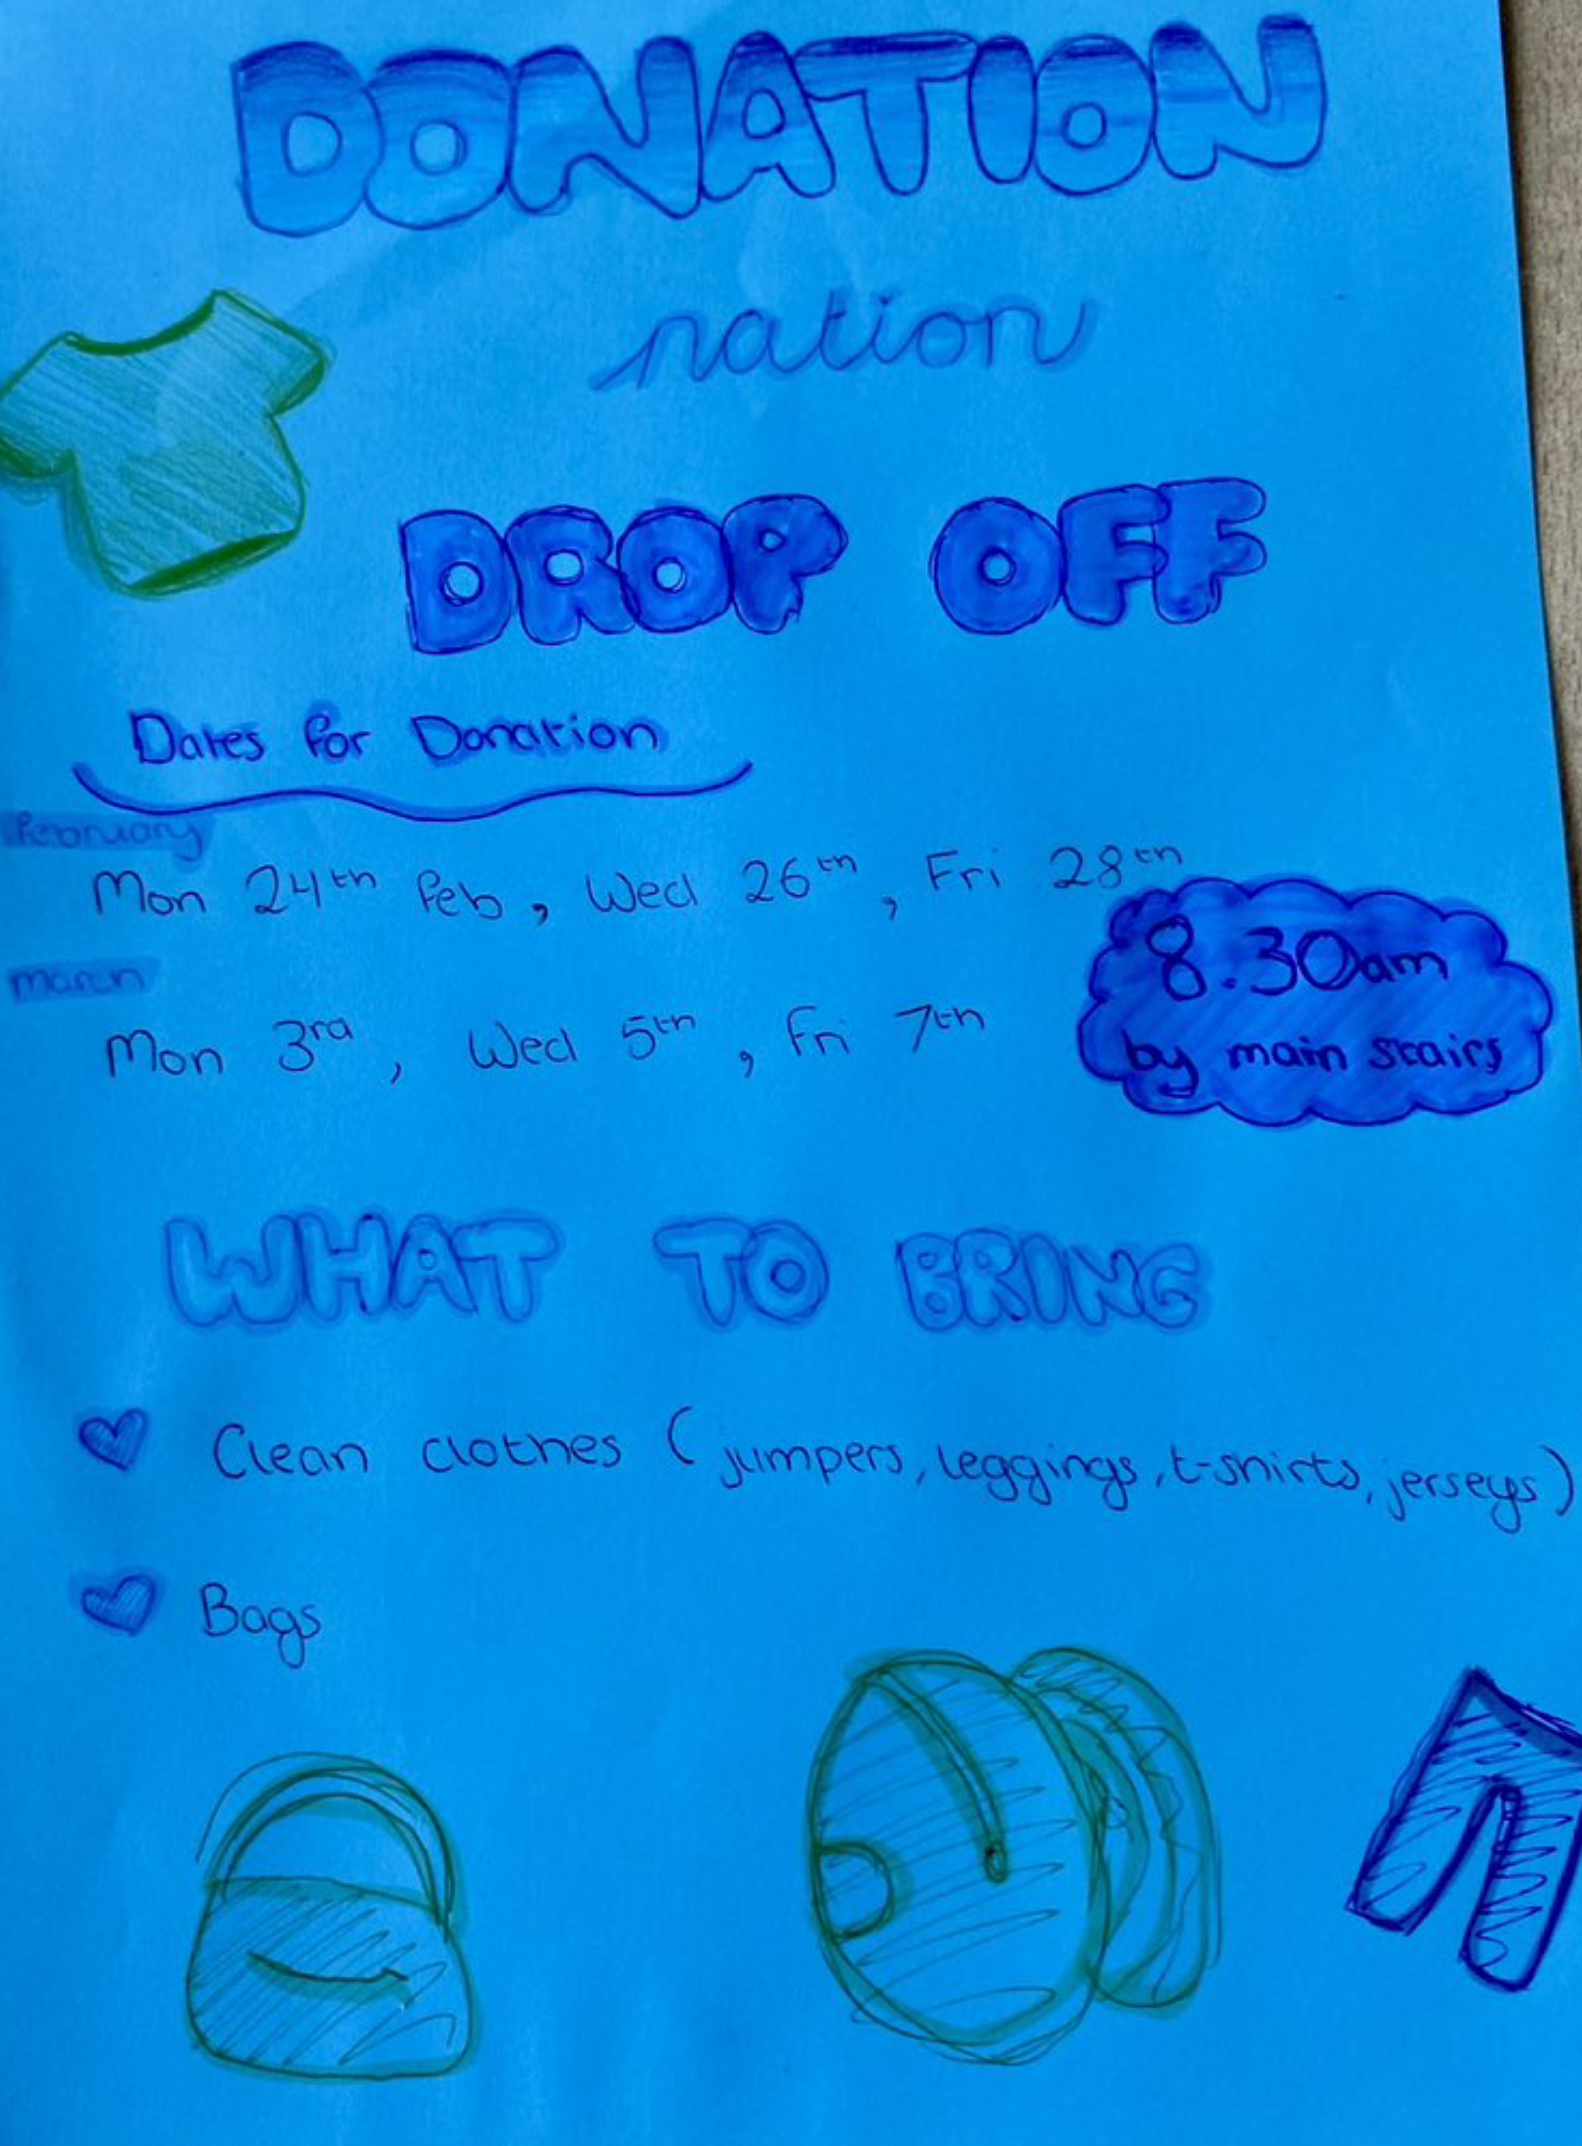 DONATION
nation
DROP OFF
Dates for Donation
February
Mon 24th Feb, Wed 26th, Fri 28th
March
Mon 3rd, Wed 5th, Fri 7th
8.30am
by main stairs
WHAT TO BRING
Clean clothes (jumpers, leggings, t-shirts, jerseys)
Bags